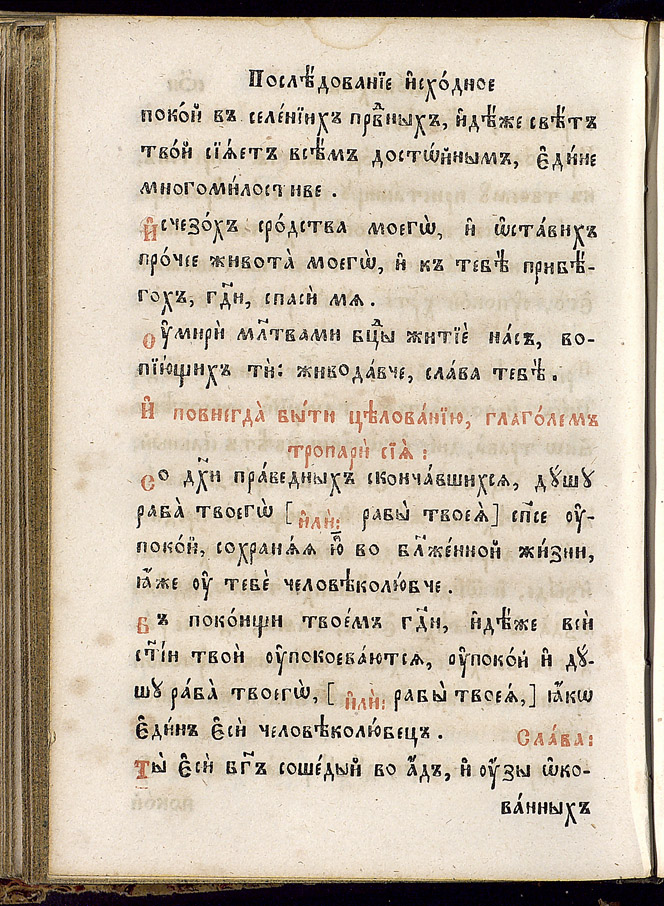 Послѣ́дованїе и҆схо́дное
поко́й въ селе́нїихъ пра́вⷣныхъ, и҆дѣ́же свѣ́тъ
тво́й сїѧ́етъ всѣ́мъ досто́йнымъ, є҆ди́не
многоми́лостиве.
И҆счезо́хъ сро́дства моегѡ̀, и҆ ѡ҆ста́вихъ
про́чее живота̀ моегѡ̀, и҆ къ тебѣ̀ прибѣ́-
гохъ, гдⷭ҇и, спасѝ мѧ.
Оу҆мирѝ мл҃твами бцⷣы житїѐ на́съ, во-
пїю́щихъ тѝ: живода́вче, сла́ва тебѣ̀.
И҆ повнегда̀ бы́ти цѣлова́нїю, глаго́лемъ
тропарѝ сїѧ̀:
Со дх҃и пра́ведныхъ сконча́вшихсѧ, дꙋ́шꙋ
раба̀ твоегѡ̀ [и҆лѝ: рабы̀ твоеѧ̀] сп҃се оу҆-
поко́й, сохранѧ́ѧ ю҆̀ во бл҃же́нной жи́зни,
ꙗ҆́же оу҆ тебѐ человѣколю́бче.
Въ поко́ищи твое́мъ гдⷭ҇и, и҆дѣ́же всѝ
ст҃і́и твоѝ оу҆покоева́ютсѧ, оу҆поко́й и҆ дꙋ́-
шꙋ раба̀ твоегѡ̀, [и҆лѝ: рабы̀ твоеѧ̀,] ꙗ҆́кѡ
є҆ди́нъ є҆сѝ человѣколю́бецъ.
Сла́ва:
Ты̀ є҆сѝ бг҃ъ соше́дый во а҆́дъ, и҆ оу҆́зы ѡ҆ко-
ва́нныхъ